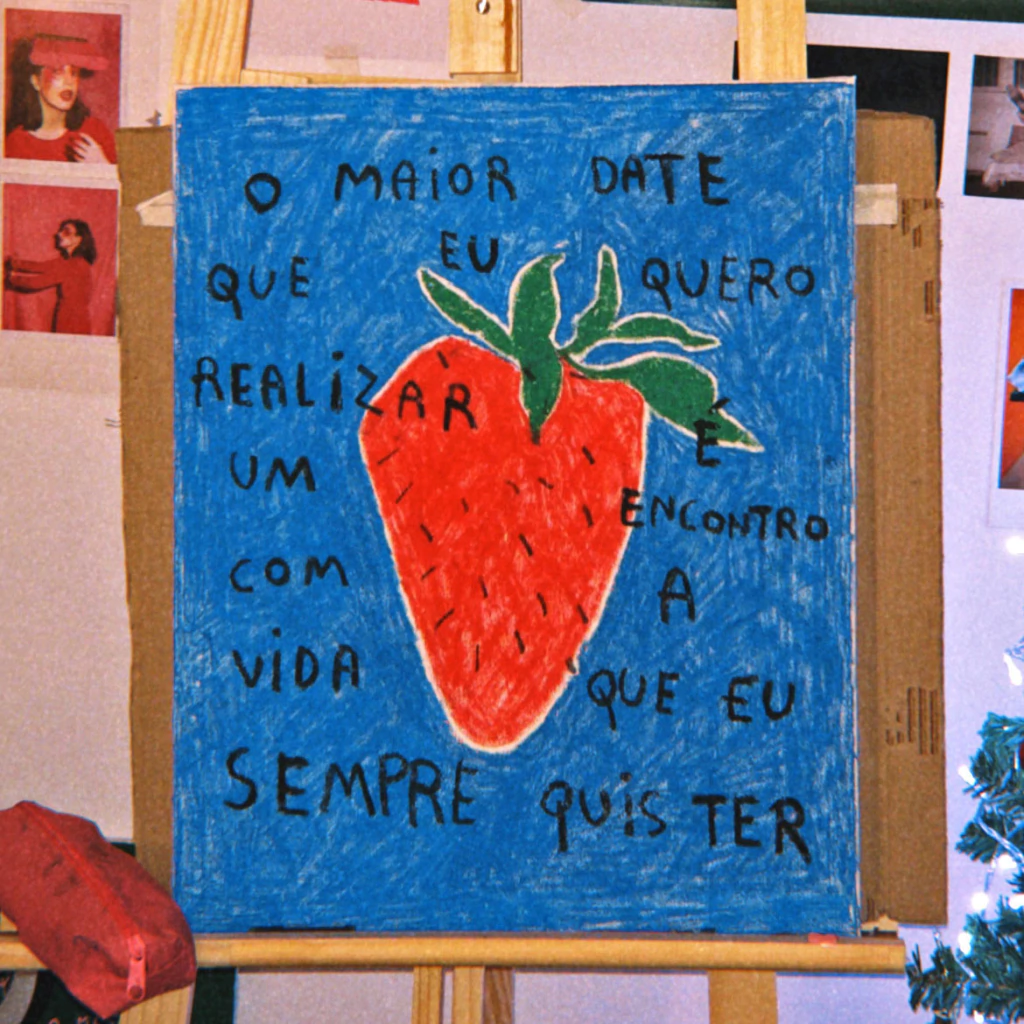 O MAIOR DATE
QUE EU QUERO
REALIZAR É
UM ENCONTRO
COM A
VIDA QUE EU
SEMPRE QUIS TER